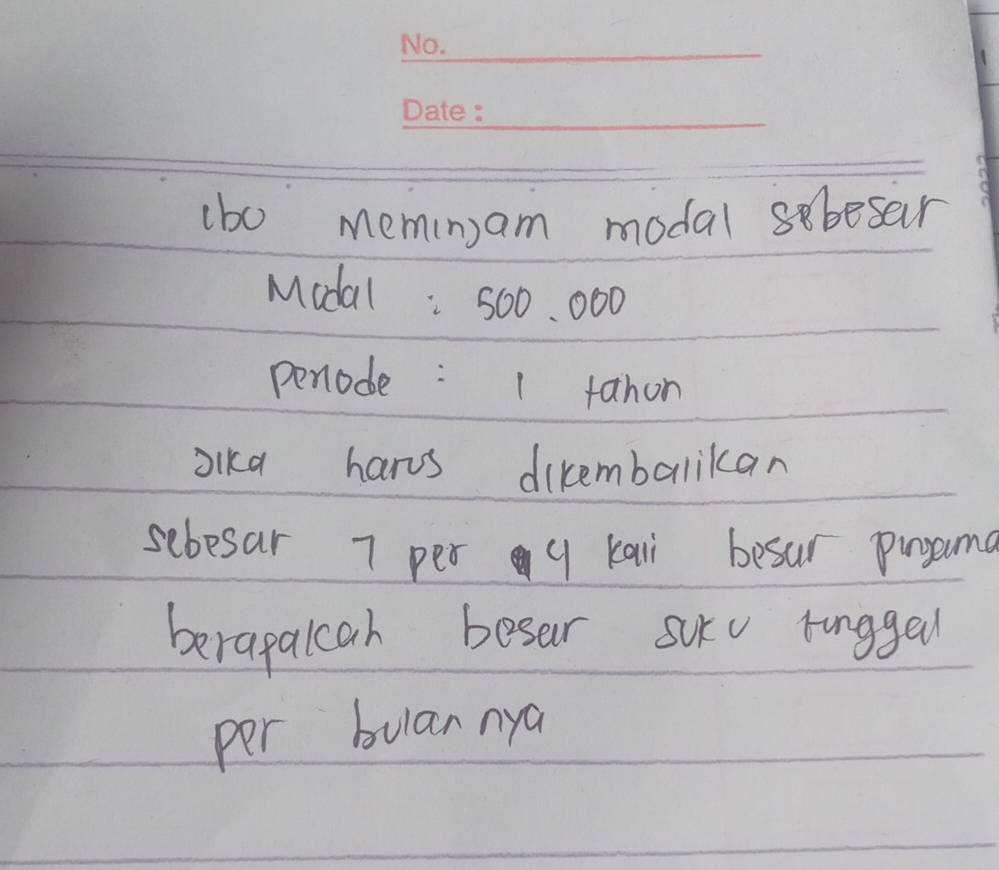 No.
Date :
ibu meminjam modal sebesar
Modal : 500.000
periode : 1 tahun
Jika harus dikembalikan
sebesar 7 per 4 kali besar
berapakah besar suku tunggal
per bulannya